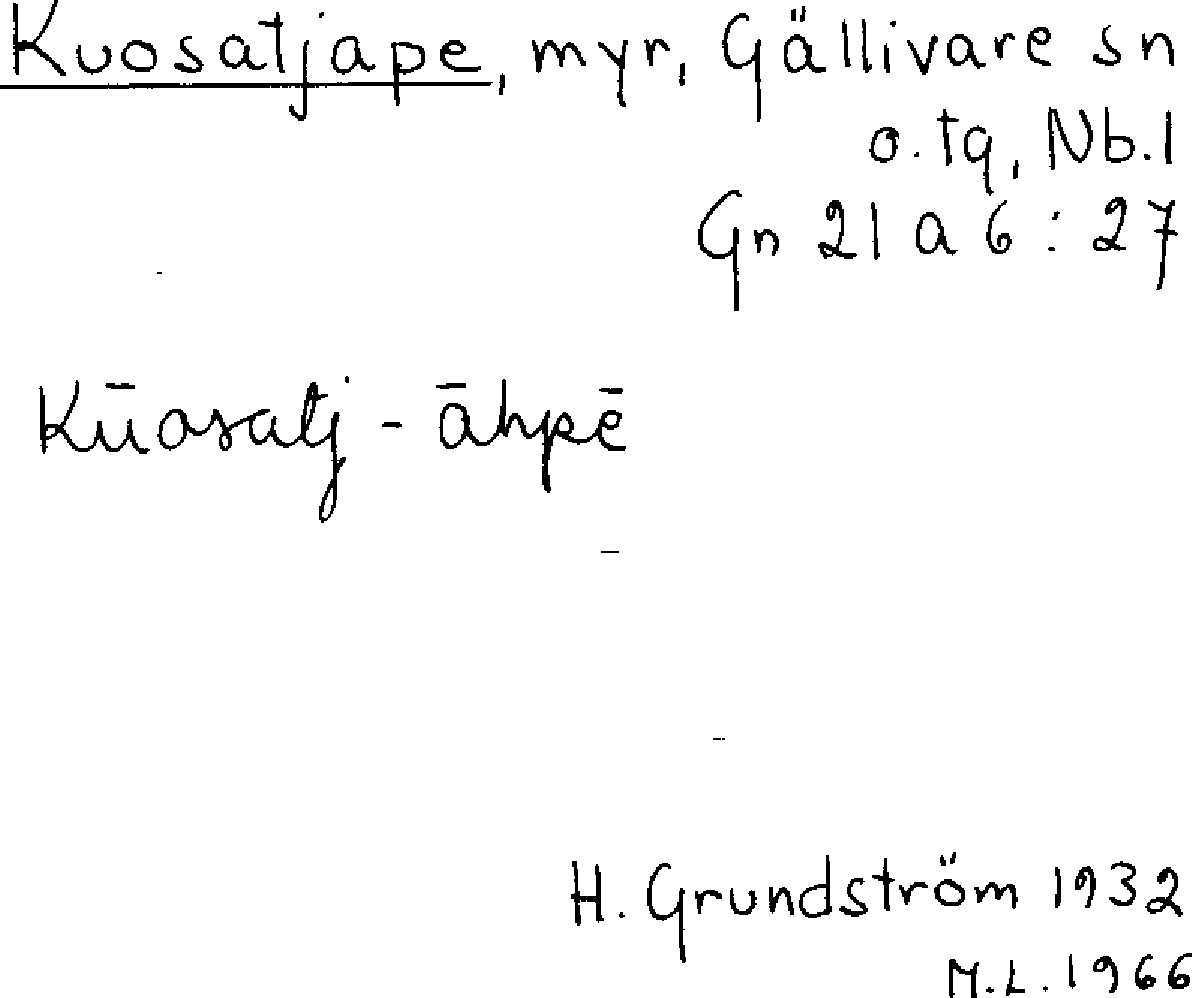 Kuosatjape, myr, Gällivare sn
o. tq, Nb. l
Gn 21 a 6 : 27
Kūosatj - āhpē
H. Grundström 1932
M. L. 1966